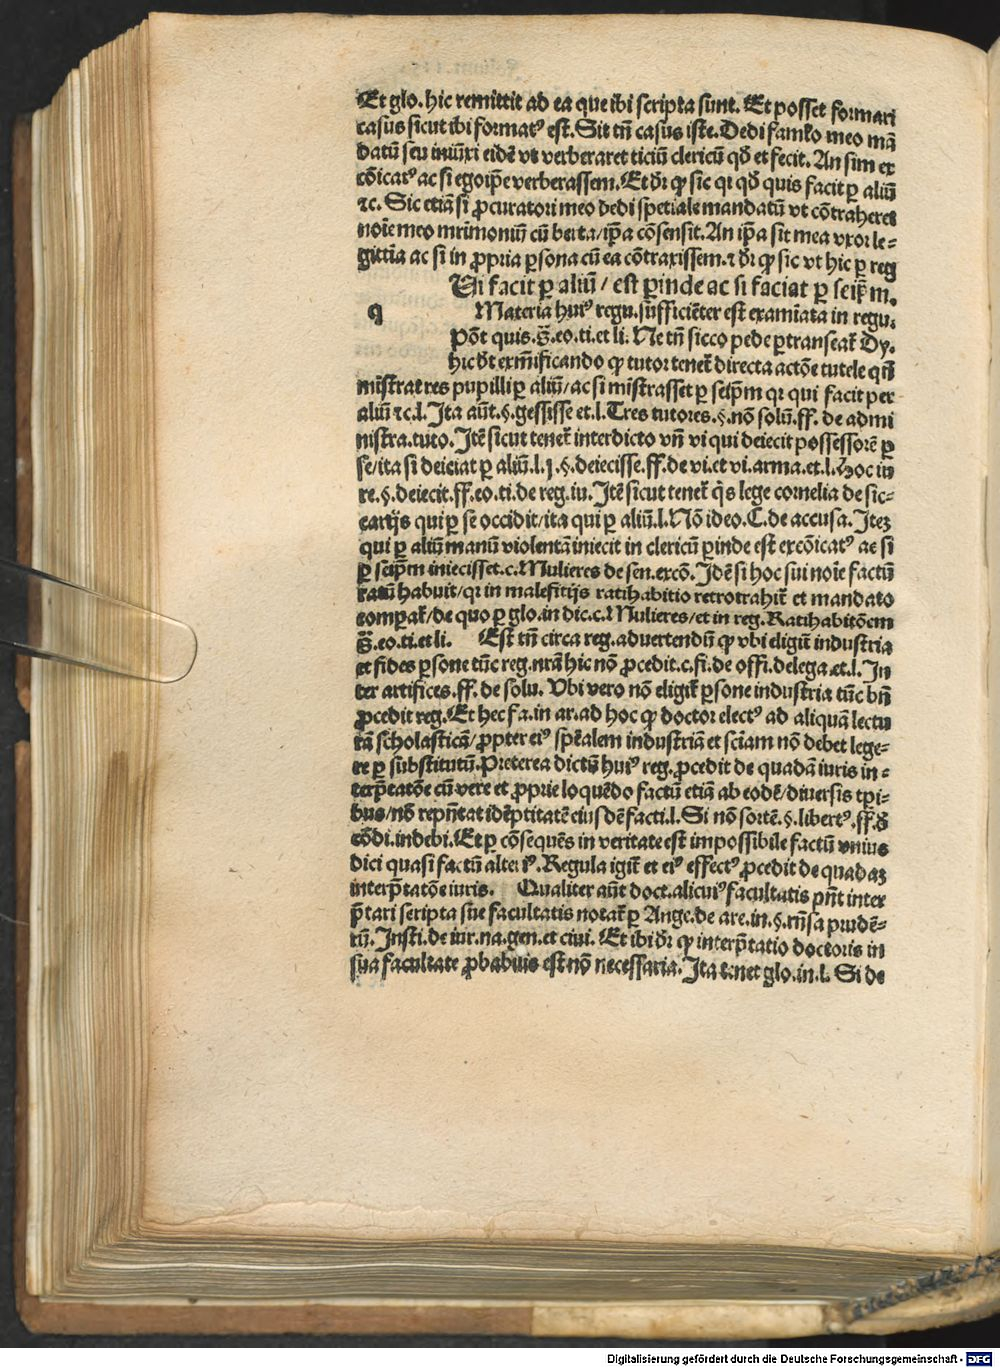 Et glo. hic remittit ad ea que ibi scripta sunt. Et posset formari
casus sicut ibi formatꝰ est. Sit tñ casus iste. Dedi famlo meo mã
datũ seu iniũxi eidẽ vt verberaret ticiũ clericũ qð et fecit. An sim ex
cõicatꝰ ac si egoip̃e verberassem. Et dr̃ ꝙ sic qꝛ qð quis facit ꝑ aliũ
⁊c. Sic etiã si ꝓcuratori meo dedi spetiale mandatũ vt cõtraheret
noĩe meo mr̃imoniũ cũ berta/ip̃a cõsensit. An ip̃a sit mea vxor le⸗
gittĩa ac si in ꝓpria ꝑsona cũ ea cõtraxissem. ⁊ dr̃ ꝙ sic vt hic ꝑ reg
Ui facit ꝑ aliũ / est ꝑinde ac si faciat ꝑ seip̃m.
q Materia huiꝰ regu. sufficiẽter est examĩata in regu.
Põt quis. s̃. eo. ti. et li. Ne tñ sicco pede ꝑtranseat̃ Dy.
hic dt̃ exm̃ificando ꝙ tutor tenet̃ directa actõe tutele qñ
mĩstrat res pupilli ꝑ aliũ/ac si mĩstrasset ꝑ seip̃m qꝛ qui facit per
aliũ ⁊c. l. Ita aũt. §. gessisse et. l. Tres tutores. §. nõ solũ. ff. de admi
nistra. tuto. Itẽ sicut tenet̃ interdicto vñ vi qui deiecit possessorẽ ꝑ
se/ita si deiciat ꝑ aliũ. l. j. §. deiecisse. ff. de vi. et vi. arma. et. l. Hoc iu
re. §. deiecit. ff. eo. ti. de reg. iu. Itẽ sicut tenet̃ q̃s lege cornelia de sic⸗
carijs qui ꝑ se occidit/ita qui ꝑ aliũ. l. Nõ ideo. C. de accusa. Iteꝫ
qui ꝑ aliũ manũ violentã iniecit in clericũ ꝑinde est excõicatꝰ ac si
ꝑ seip̃m iniecisset. c. Mulieres de sen. excõ. Idẽ si hoc sui noĩe factũ
ratũ habuit/qꝛ in malefitijs ratihabitio retrotrahit̃ et mandato
comꝑat̃/de quo ꝑ glo. in dic. c. Mulieres/et in reg. Ratihabitõem
s̃. eo. ti. et li. Est tñ circa reg. aduertendũ ꝙ vbi eligit̃ industria
et fides ꝑsone tũc reg. nr̃a hic nõ ꝓcedit. c. fi. de offi. delega. et. l. In
ter artifices. ff. de solu. Vbi vero nõ eligit̃ ꝑsone industria tũc bñ
ꝓcedit reg. Et hec fa. in ar. ad hoc ꝙ doctor electꝰ ad aliquã lectu
rã scholasticã/ꝓpter eiꝰ spẽalem industriã et sciam nõ debet lege⸗
re ꝑ substitutũ. Preterea dictũ huiꝰ reg. ꝓcedit de quadã iuris in⸗
terp̃tatõe cũ vere et ꝓprie loquẽdo factũ etiã ab eodẽ/diuersis tp̃i⸗
bus/nõ rep̃ñtat idẽptitatẽ eiusdẽ facti. l. Si nõ sortẽ. §. libertꝰ. ff. ð
cõdi. indebi. Et ꝑ cõsequẽs in veritate est impossibile factũ vnius
dici quasi factũ alteriꝰ. Regula igit̃ et eiꝰ effectꝰ ꝓcedit de quadaꝫ
interp̃tatõe iuris. Qualiter aũt doct. alicuiꝰ facultatis pñt inter
p̃tari scripta sue facultatis notat̃ ꝑ Ange. de are. in. §. rñsa prudẽ⸗
tũ. Insti. de iur. na. gen. et ciui. Et ibi dr̃ ꝙ interp̃tatio doctoris in
sua facultate ꝓbabilis est nõ necessaria. Ita tenet glo. in. l. Si de
Digitalisierung gefördert durch die Deutsche Forschungsgemeinschaft - DFG